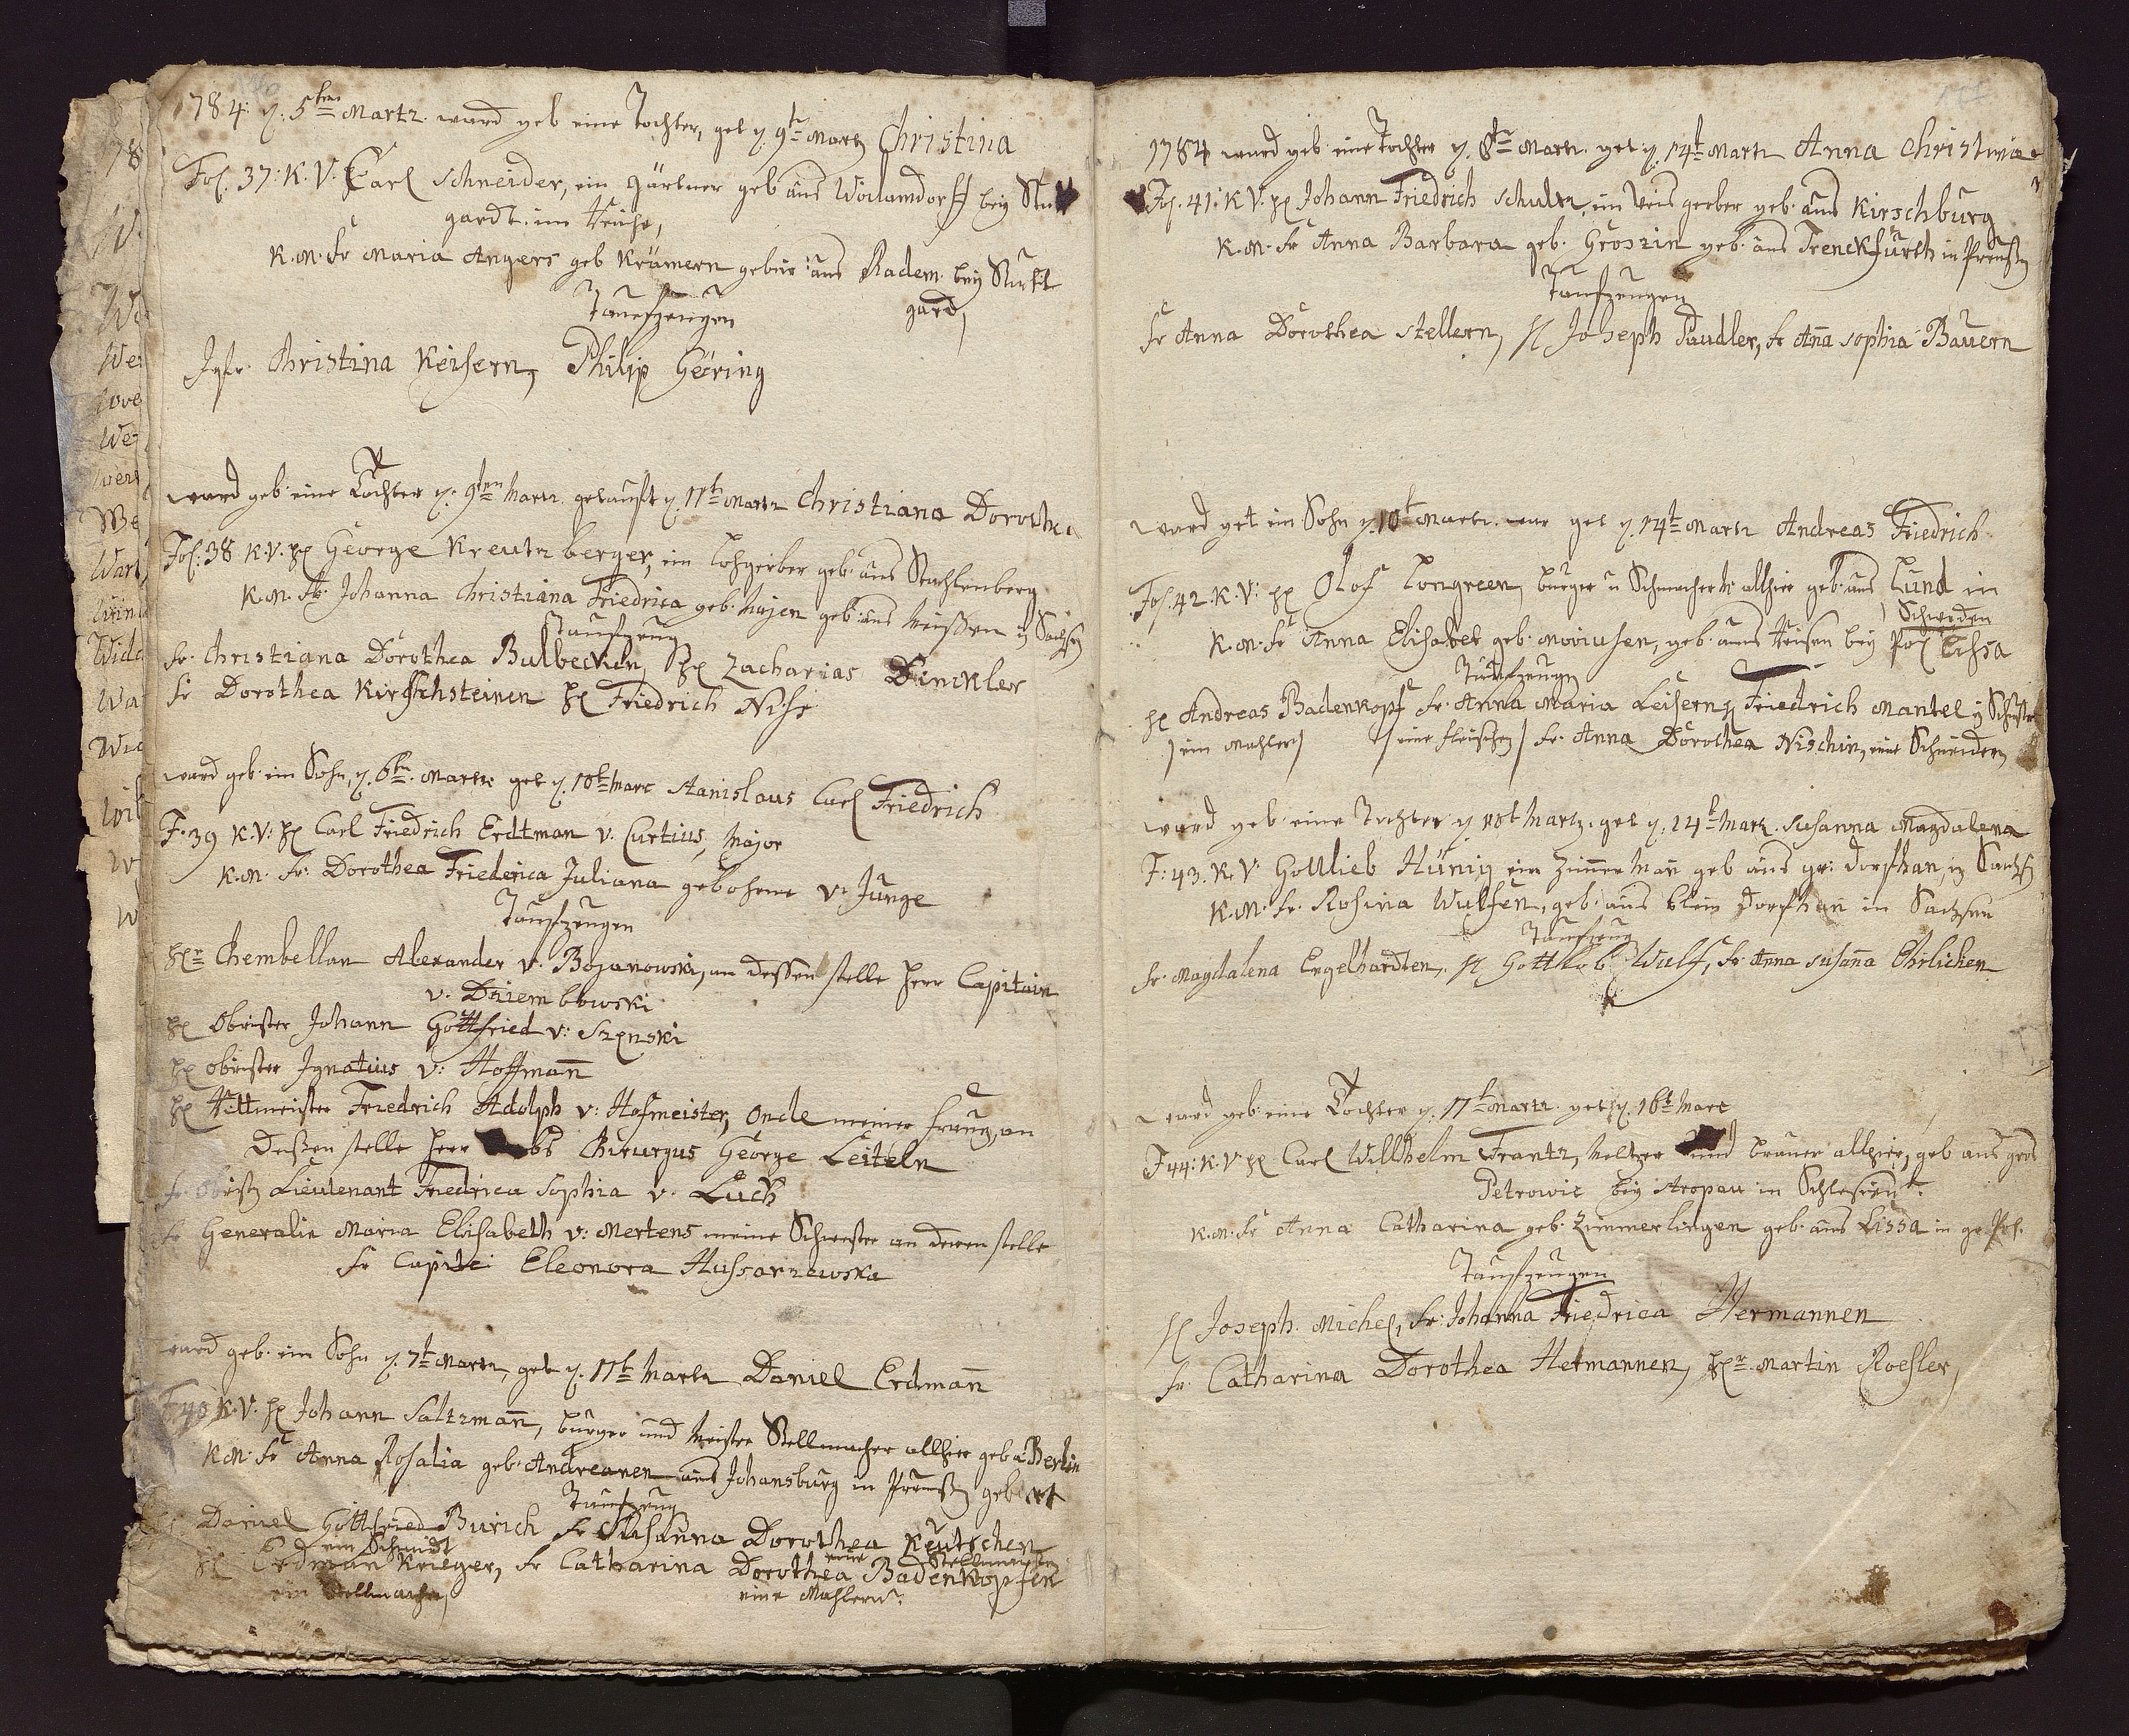 1784: d. 5ten Martz. ward geb eine Tochter, get d. 9t Martz Christina
Fol. 37: K. V. Carl Schneider, ein Gärtner geb aus Woilamdorff bey Stut
gardt. im Reiche,
K. M. Fr Maria Angers geb Krämern gebür: aus Radem. bey Stutt
gard,
Taufzeugen
Jgfr. Christina Keisern, Philip Göring
ward geb. eine Tochter d. 9ten Martz. getauft d. 11t Martz Christiana Dorothea
Fol: 38 K. V. H George Kreutzberger, ein Lohgerber geb. aus Stachlenberg
K. M. Fr. Johanna Christiana Friedrica geb. Majen geb. aus Meissen in Sachsen
Taufzeug
Fr. Christiana Dorothea Bulbecken, H Zacharias Dinckler
Fr Dorothea Kirschsteinen H Friedrich Nisse
ward geb. ein Sohn, d. 6tn. Martz get d. 10t Marc Stanislaus Carl Friedrich
F. 39 K. V: H Carl Friedrich Erdtman v. Curtius, Major
K. M. Fr. Dorothea Friederica Juliana gebohrne v. Junge
Taufzeugen
Hr Chembellan Alexander v. Bojanowski, an dessen stelle Herr Capitain
v. Dziembowski
H Obrister Johann Gottfried v: Szenski
H obrister Ignatius v: Hoffmañ
H Rittmeister Friedrich Adolph v: Hofmeister, Oncle meiner Frauen, an
Dessen stelle Herr Chirurgus George Leiteln
Fr. Obrist Lieutenant Friedrica Sophia v. Luck
Fr Generalin Maria Elisabeth v: Mertens meine Schwester an deren stelle
Fr Capit: Eleonora Hussarzewska
ward geb. ein Sohn d. 7t Martz, get d. 11t Martz Daniel Erdmañ
F 40 K. V. H Johann Saltzmañ, bürger und Meister Stellmacher allhier geb a: Berlin
K. M. Fr Anna Rosalia geb. Andreanen aus Johansburg in Preussen
Taufzeug
Daniel Gottfried Burich Fr Susanna Dorothea Keutschen
ein Schmidt eine Stellmachern
H Erdman Krieger, Fr Catharina Dorothea Badenkopfen
ein Stellmacher, eine Mahlern.
1784 ward geb. eine Tochter d. 8tn Martz. get d. 14t Martz Anna Christina
Fol. 41: K. V. H Johann Friedrich Schultz, ein Weis gerber geb. aus Kirschburg
K. M. Fr Anna Barbara geb. Groszin geb. aus Trenckfurth in Preussen
Taufzeugen
Fr Anna Dorothea Stellern, H Joseph Paudler, Fr Aña Sophia Bauern
ward get ein Sohn d. 10t Martz. get d. 14t Martz Andreas Friedrich
Fol. 42. K. V: H Olof Longreen, bürger u Schumacher allhier geb. aus Lund in
Schweden
K. M. Fr Anna Elisabet geb. Moviusen, geb. aus Reisen bey Pol Lissa
Taufzeugen
H Andreas Badenkopf Fr. Anna Maria Leisern, Friedrich Mantel ein Schuster
/ein Mahler/ /eine Fleischer/ Fr. Anna Dorothea Nischin, eine Schneidern
ward geb. eine Tochter d 10t Martz. get d. 14t Martz. Susanna Magdalena
F: 43. K. V. Gottlieb Hünig ein Zimmer Mañ geb aus gr: Dorfhan, in Sachsen
K. M. Fr. Rosina Wulfen, geb. aus klein Dorfhan in Sachsen
Taufzeug
Fr. Magdalena Engelhardten, H Gottlob Wulf, Fr. Anna Susaña Ehrlichen
ward geb. eine Tochter d. 11t Martz. get d. 16t Marc
F 44: K. V H Carl Willhelm Frantz, Meltzer und brauer allhier, geb aus gros
Petrowic bey Stropau in Schlesien.
K. M. Fr Anna Catharina geb. Zimmerlingen geb. aus Lissa in gr. Pol.
Taufzeugen
H Joseph Michel, Fr. Johanna Friedrica Hermannen
Fr. Catharina Dorothea Hermannen, Hr. Martin Roesler,